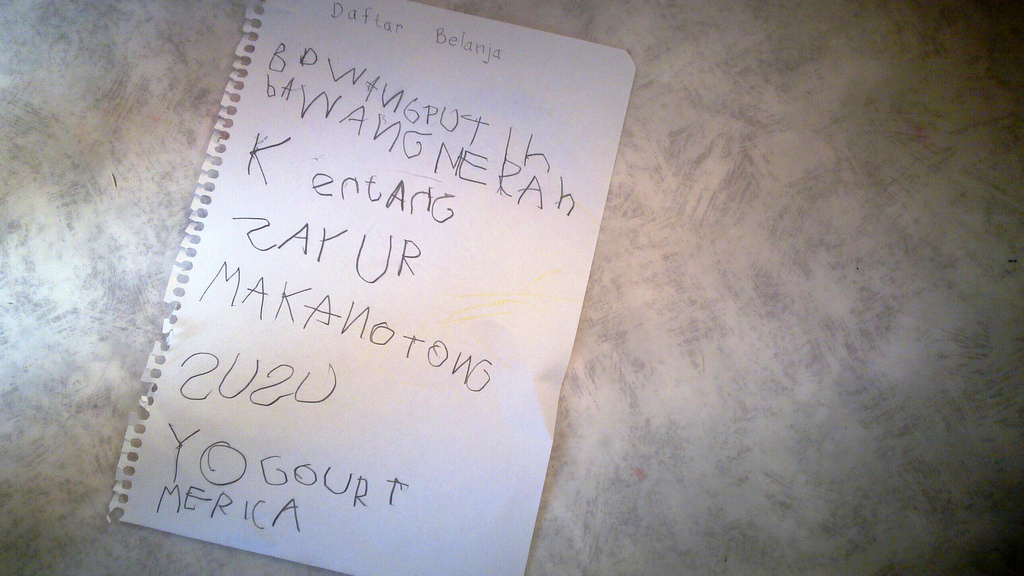 Daftar Belanja
BDWANGPUTIh
bAWANGMERAh
KentANG
SAYUR
MAKANOTONG
SUSU
YOGOURT
MERICA